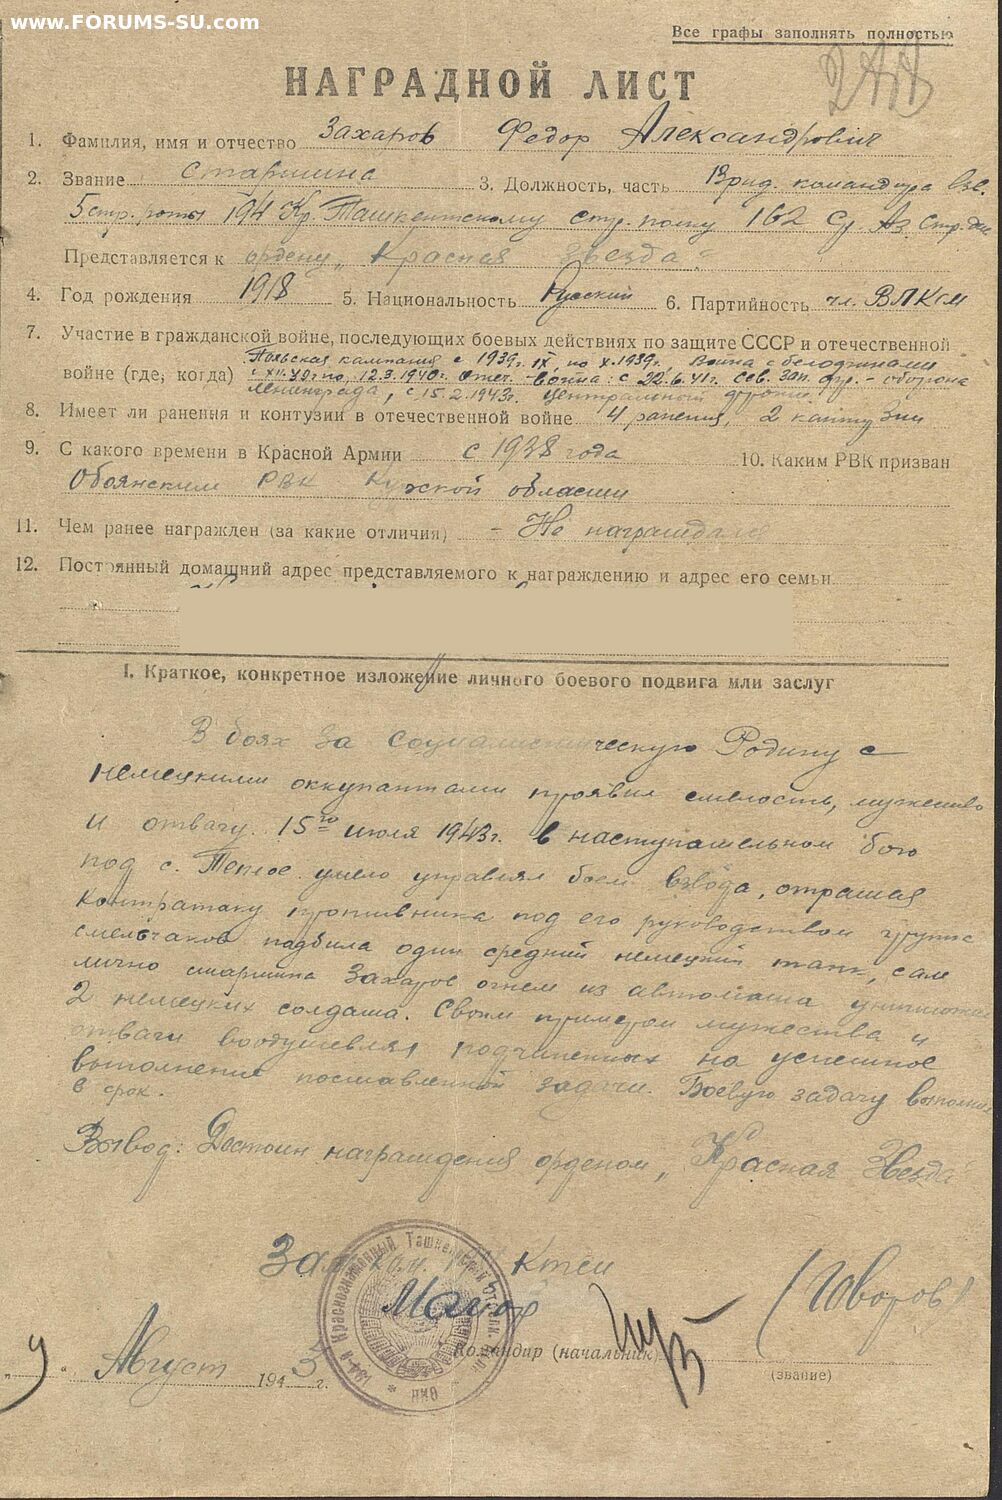 www.FORUMS-SU.com
Все графы заполнять полностью
НАГРАДНОЙ ЛИСТ
1. Фамилия, имя и отчество Захаров Федор Александрович
2. Звание Старшина 3. Должность, часть Врид. командира взв.
5 стр. роты 194 Кр. Ташкентскому стр. полку 162 Ср. Аз. Стр. див.
Представляется к ордену „Красная звезда"
4. Год рождения 1918 5. Национальность Русский 6. Партийность чл. ВЛКСМ
7. Участие в гражданской войне, последующих боевых действиях по защите СССР и отечественной
войне (где, когда) Польская кампания с 1939г. IX, по X.1939г. Война с белофинами
с XII.39г по, 12.3.1940г. Отеч. война: с 22.6.41г. Сев. Зап. фр. - оборона
Ленинграда, с 15.2.1943г. Центральный фронт.
8. Имеет ли ранения и контузии в отечественной войне 4 ранения, 2 контузии
9. С какого времени в Красной Армии с 1938 года 10. Каким РВК призван
Обоянским РВК Курской области
11. Чем ранее награжден (за какие отличия) - Не награждался
12. Постоянный домашний адрес представляемого к награждению и адрес его семьи
I. Краткое, конкретное изложение личного боевого подвига или заслуг
В боях за социалистическую Родину с
немецкими оккупантами проявил смелость, мужество
и отвагу. 15го июля 1943г. в наступательном бою
под с. Теплое умело управлял боем взвода, отражая
контратаку противника под его руководством группа
смельчаков подбила один средний немецкий танк, сам
лично старшина Захаров огнем из автомата уничтожил
2 немецких солдата. Своим примером мужества и
отваги воодушевлял подчиненных на успешное
выполнение поставленной задачи. Боевую задачу выполнил
в срок.
Вывод: Достоин награждения орденом „Красная Звезда"
Зам ком.
Майор (Говоров)
Командир (начальник)
(звание)
Август 1943 г.
Краснознаменный Ташкентский